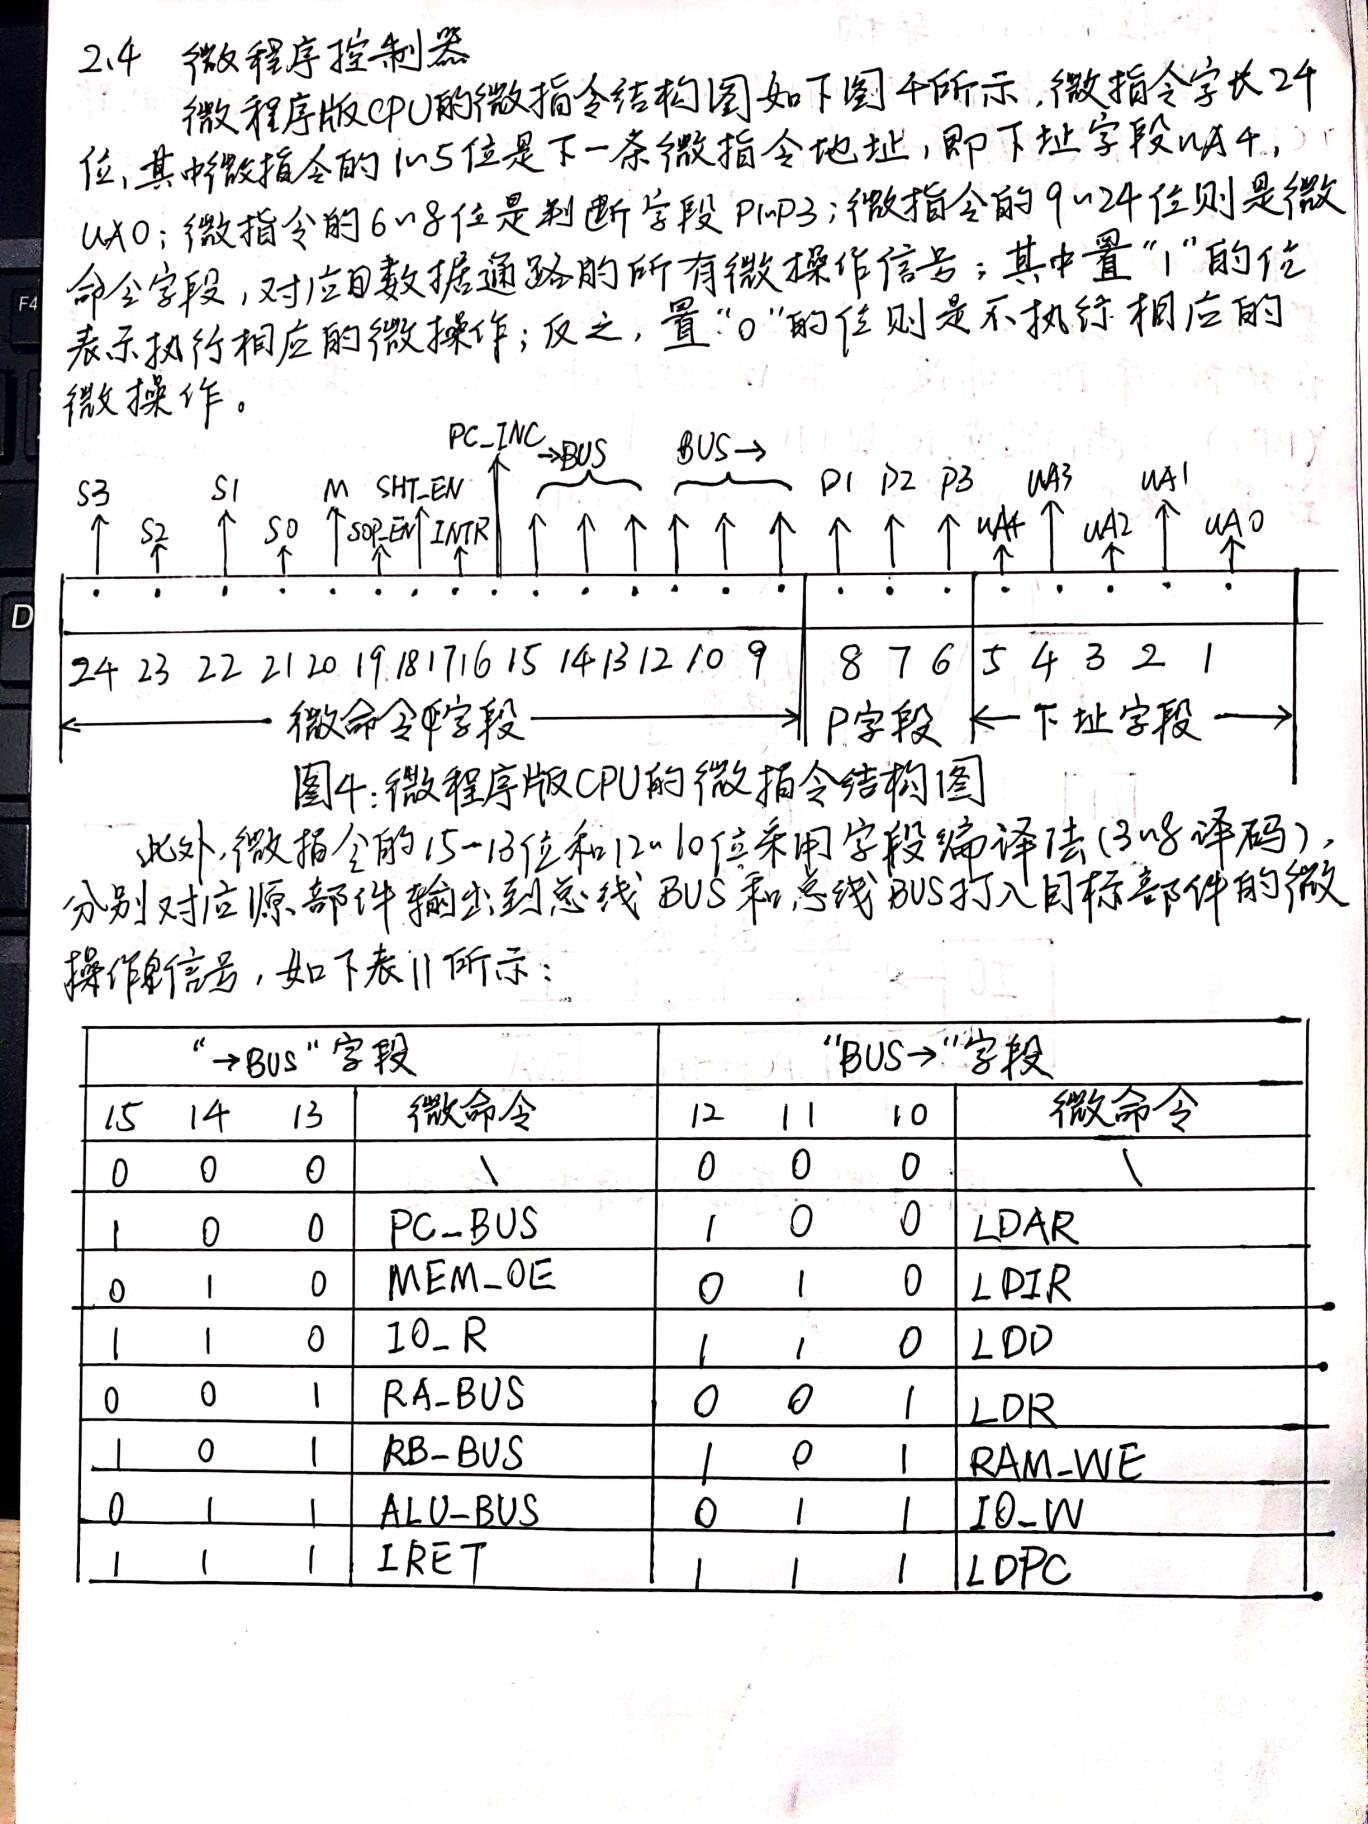 2.4 微程序控制器
微程序版CPU的微指令结构图如下图4所示,微指令字长24
位,其中微指令的1~5位是下一条微指令地址,即下址字段UA4,
UA0;微指令的6~8位是判断字段P1~P3;微指令的9~24位则是微
命令字段,对应数据通路的所有微操作信号;其中置"1"的位
表示执行相应的微操作;反之,置"0"的位则是不执行相应的
微操作。
PC_INC →BUS BUS→
S3 S1 M SHT_EN P1 P2 P3 UA3 UA1
S2 S0 SOP_EN INTR UA4 UA2 UA0
24 23 22 21 20 19 18 17 16 15 14 13 12 10 9 8 7 6 5 4 3 2 1
微命令字段 P字段 下址字段
图4:微程序版CPU的微指令结构图
此外,微指令的15~13位和12~10位采用字段编译法(3~8译码),
分别对应源部件输出到总线BUS和总线BUS打入目标部件的微
操作信号,如下表11所示:
"→BUS"字段 "BUS→"字段
15 14 13 微命令 12 11 10 微命令
0 0 0 \ 0 0 0 \
1 0 0 PC_BUS 1 0 0 LDAR
0 1 0 MEM_OE 0 1 0 LDIR
1 1 0 IO_R 1 1 0 LDD
0 0 1 RA_BUS 0 0 1 LDR
1 0 1 RB_BUS 1 0 1 RAM_WE
0 1 1 ALU_BUS 0 1 1 IO_W
1 1 1 IRET 1 1 1 LDPC
F4
D